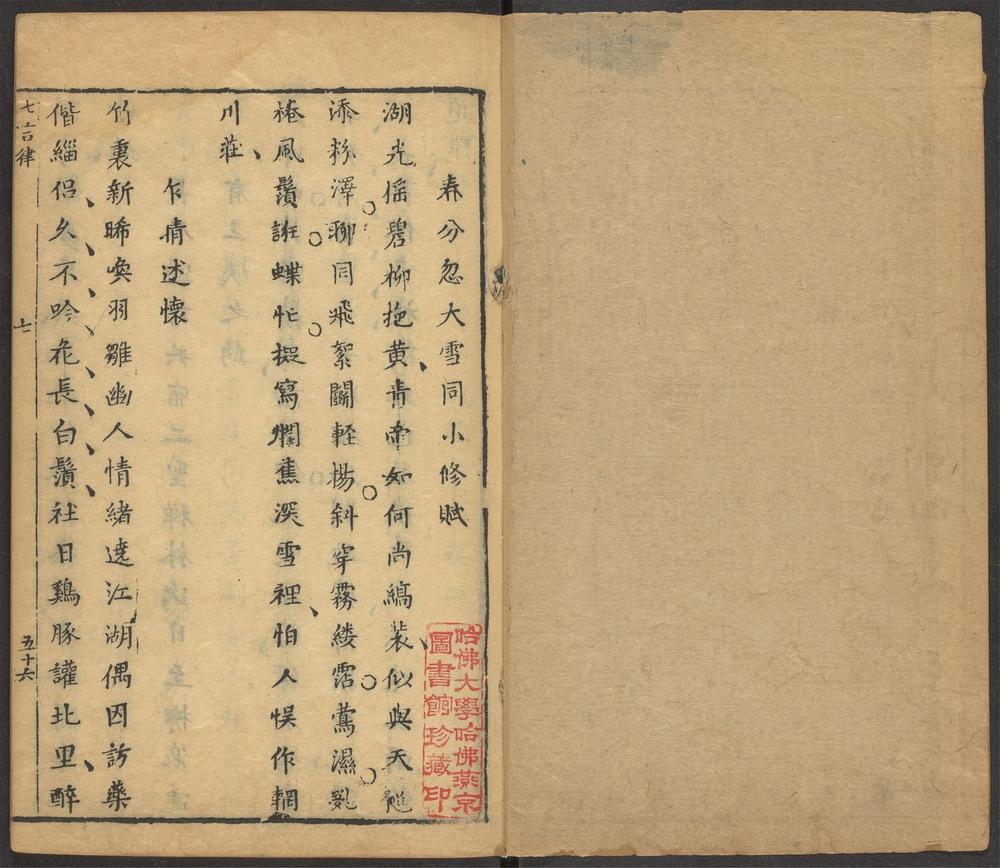 春分忽大雪同小修賦
湖光搖碧柳拖黃青帝如何尚縞裝似與天
添粉澤聊同飛絮鬬輕揚斜穿霧縷霑鶯濕亂
捲風鬚誑蝶忙擬寫爛蕉深雪裡怕人悞作輞
川莊
乍晴述懷
竹裏新晞喚羽雛幽人情緒遶江湖偶因訪藥
偕緇侶久不吟花長白鬚社日鷄豚讙北里醉
七言律
七
五十六
哈佛大學哈佛燕京
圖書館珍藏印